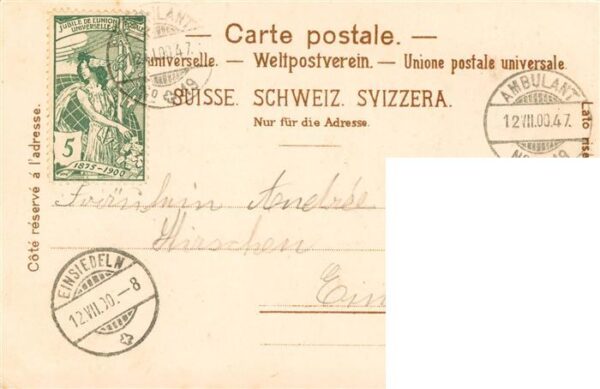 JUBILÉ DE L'UNION
UNIVERSELLE
5
1875-1900
— Carte postale. —
universelle. — Weltpostverein. — Unione postale universale.
SUISSE. SCHWEIZ. SVIZZERA.
Nur für die Adresse.
Côté réservé à l'adresse.
Lato rise
AMBULANT
12.VII.00.47.
AMBULANT
12.VII.00.47.
No 19
Fräulein Andrée
Hirschen
Ein
EINSIEDELN
12.VII.00.–8